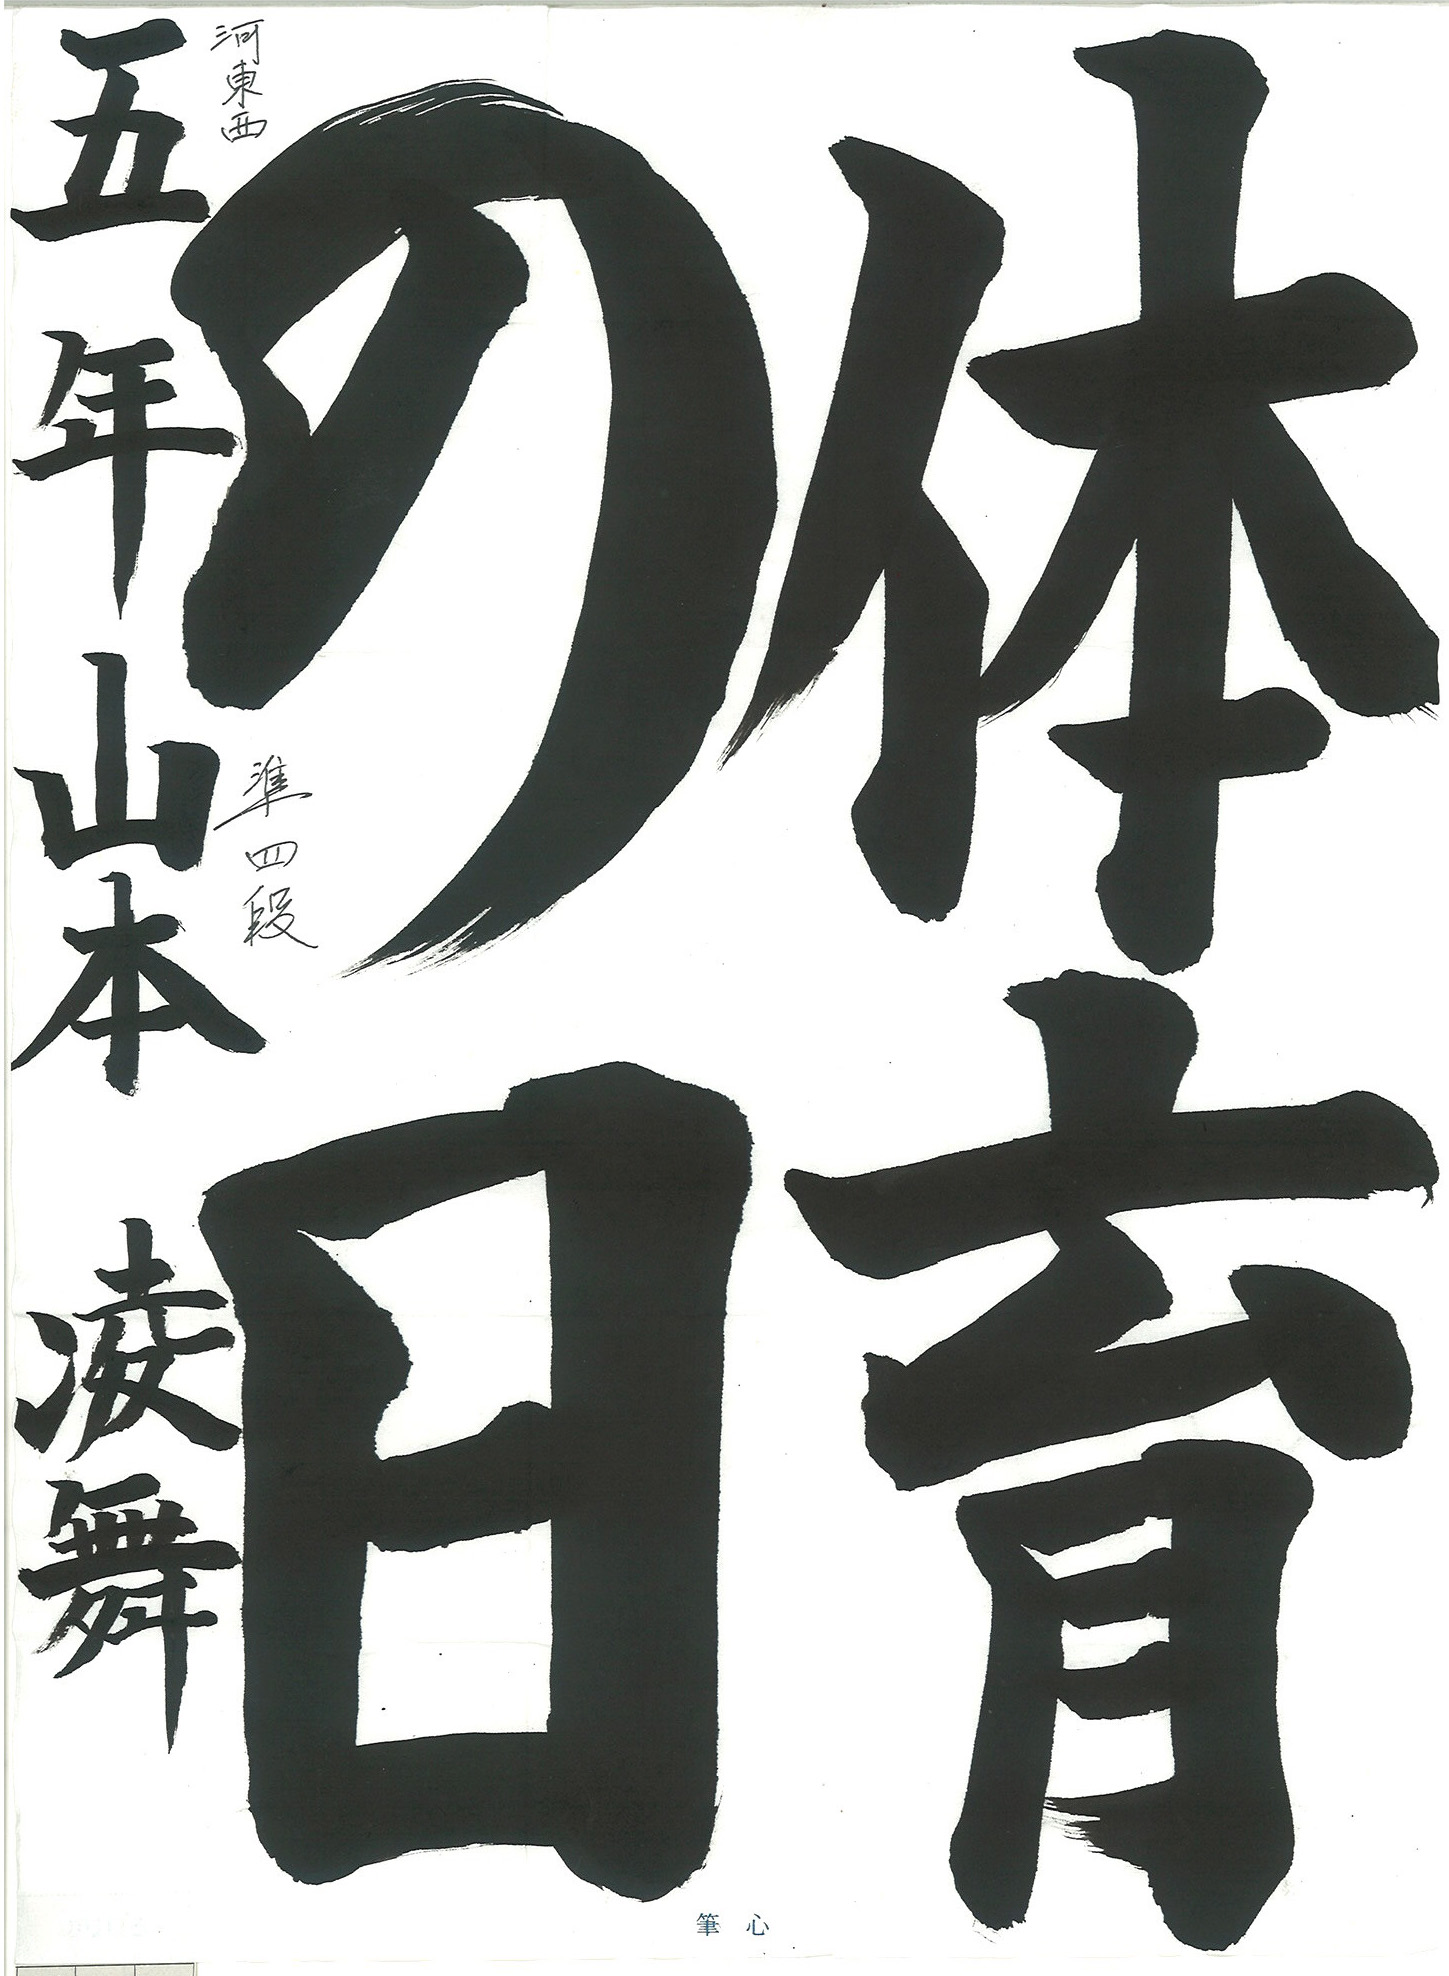 体育
の日
河東西
準四段
五年山本凌舞
筆心